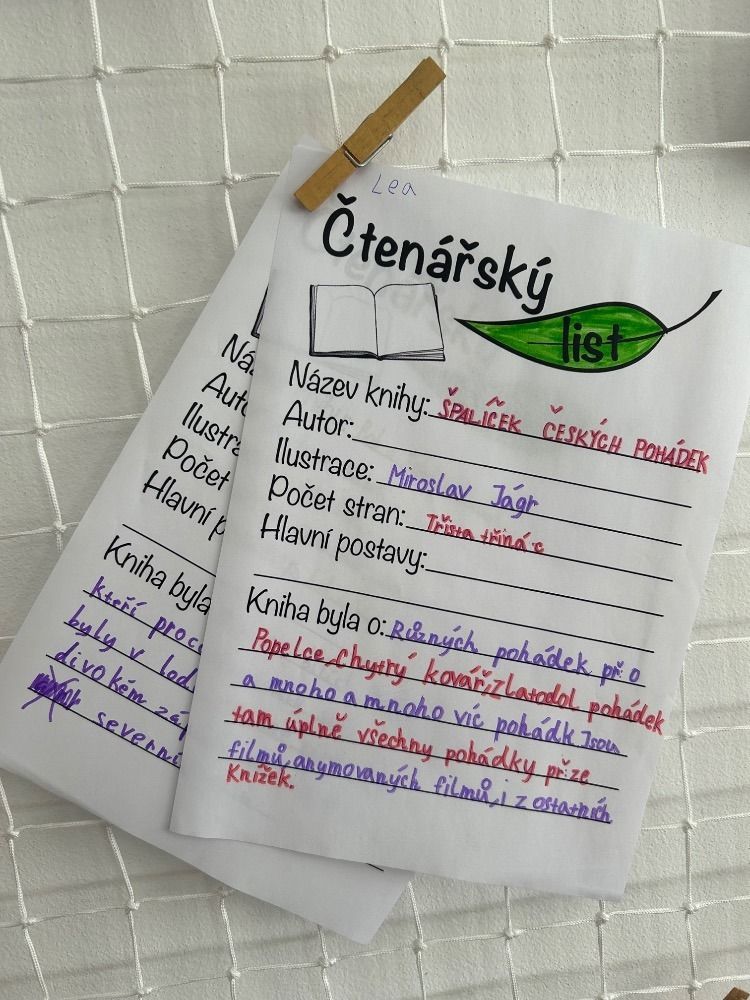 Lea
Čtenářský
list
Název knihy: ŠPALÍČEK ČESKÝCH POHÁDEK
Autor:
Ilustrace: Miroslav Jágr
Počet stran: Třista třinác
Hlavní postavy:
Kniha byla o: Různých pohádek př:o
Popelce, Chytrý kovář, Zlatodol pohádek
a mnoho a mnoho víc pohádk Jsou
tam úplně všechny pohádky př:ze
filmů, anymovaných filmů, i z ostatních
Knížek.
Ná
Auto
Ilustra
Počet
Hlavní p
Kniha byla
kteří proc
byly v lod
divokém záp
severní